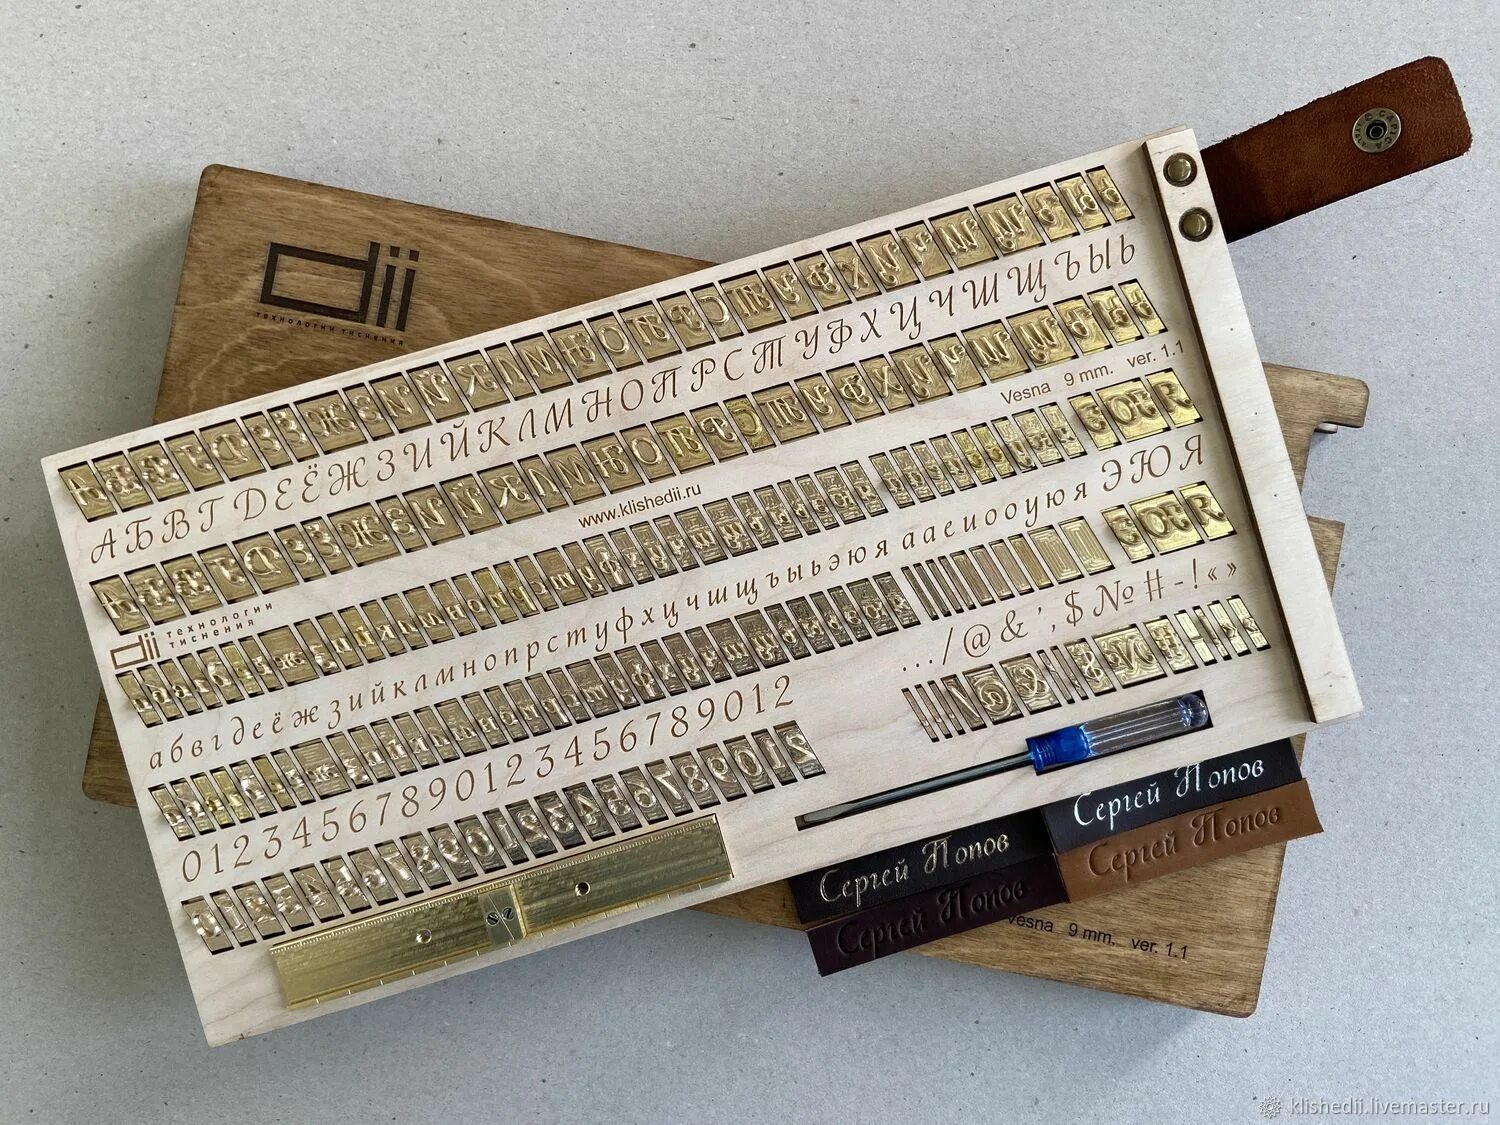 dii
технологии тиснения
АБВГДЕЁЖЗИЙКЛМНОПРСТУФХЦЧШЩЪЫЬ
Vesna 9 mm. ver. 1.1
www.klishedii.ru
ЭЮЯ
dii технологии
тиснения
абвгдеёжзийклмнопрстуфхцчшщъыьэюя ааеиооуюя
.../@&',$№#-!«»
0123456789012345678901​2
Сергей Попов
Сергей Попов
Сергей Попов
Сергей Попов
Vesna 9 mm. ver. 1.1
klishedii.livemaster.ru